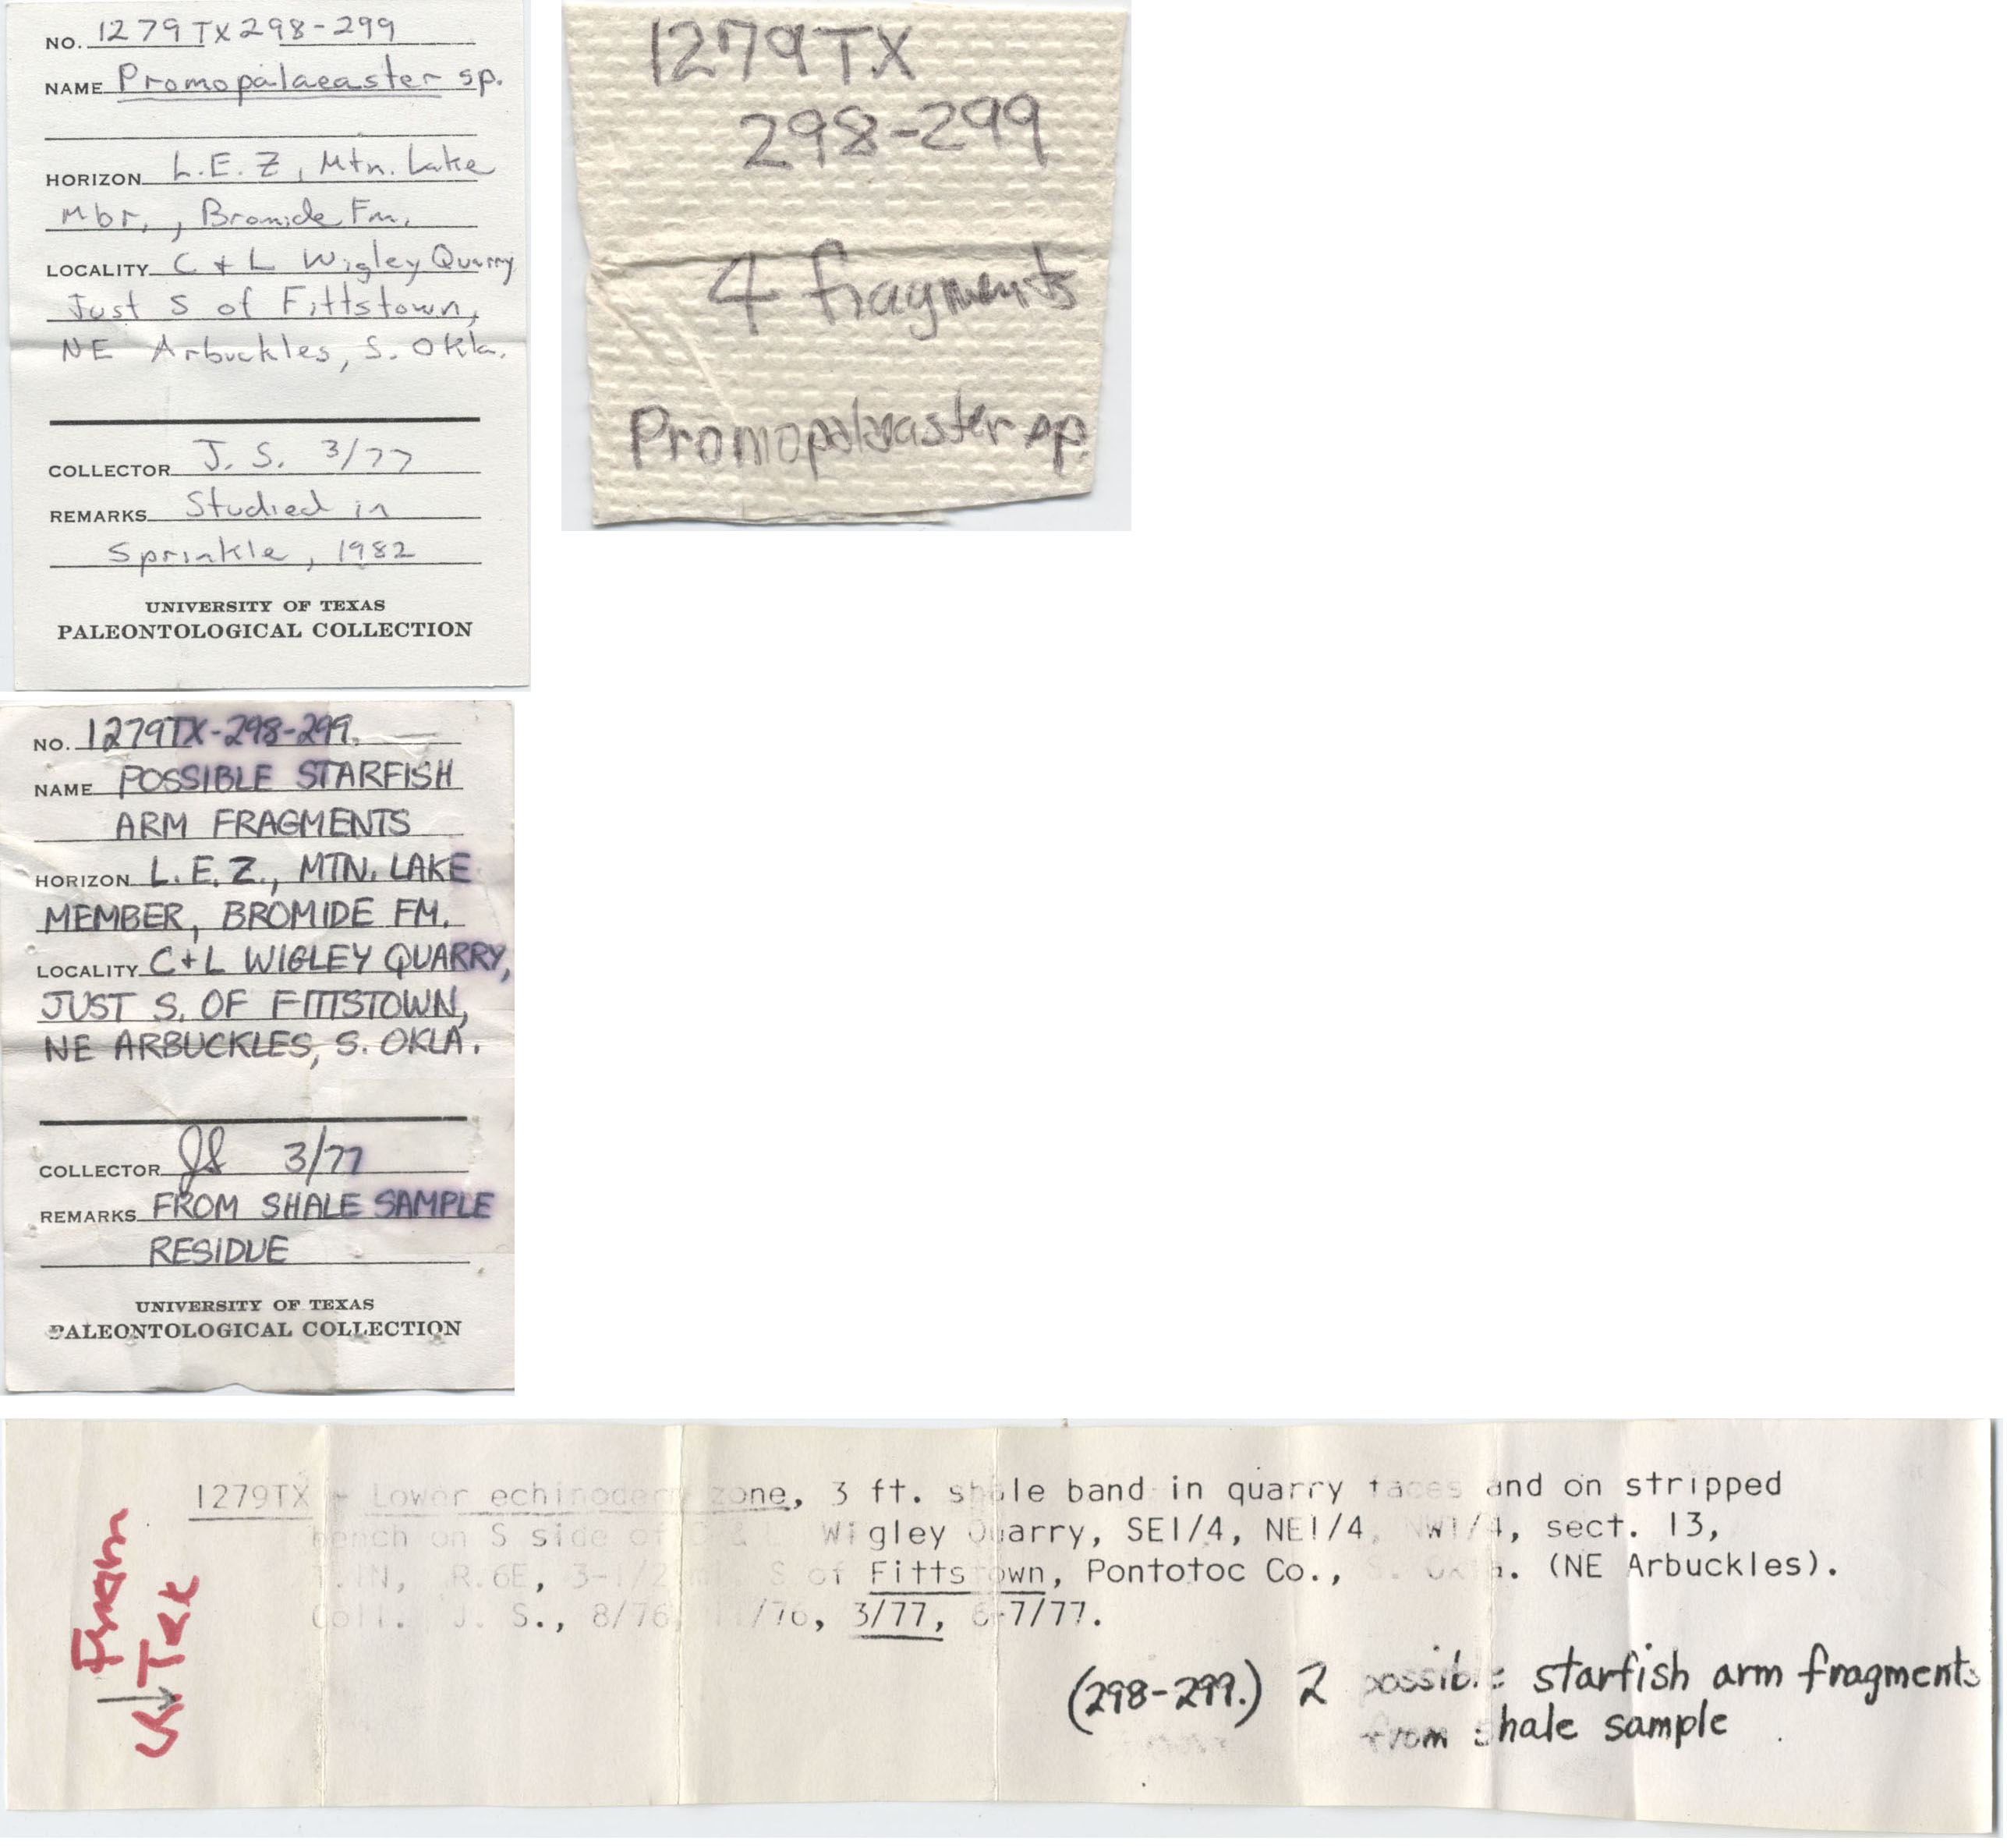 NO. 1279TX298-299
NAME Promopalaeaster sp.
HORIZON L.E.Z, Mtn. Lake
Mbr., Bromide Fm.
LOCALITY C + L Wigley Quarry
Just S of Fittstown,
NE Arbuckles, S. Okla.
COLLECTOR J. S. 3/77
REMARKS Studied in
Sprinkle, 1982
UNIVERSITY OF TEXAS
PALEONTOLOGICAL COLLECTION
1279TX
298-299
4 fragments
Promopalaeaster sp.
NO. 1279TX-298-299.
NAME POSSIBLE STARFISH
ARM FRAGMENTS
HORIZON L.E.Z., MTN. LAKE
MEMBER, BROMIDE FM.
LOCALITY C+L WIGLEY QUARRY,
JUST S. OF FITTSTOWN,
NE ARBUCKLES, S. OKLA.
COLLECTOR JS 3/77
REMARKS FROM SHALE SAMPLE
RESIDUE
UNIVERSITY OF TEXAS
PALEONTOLOGICAL COLLECTION
1279TX - Lower echinoderm zone, 3 ft. shale band in quarry faces and on stripped
bench on S side of C & L Wigley Quarry, SE1/4, NE1/4, NW1/4, sect. 13,
T.1N, R.6E, 3-1/2 mi. S of Fittstown, Pontotoc Co., S. Okla. (NE Arbuckles).
Coll. J. S., 8/76, 11/76, 3/77, 6-7/77.
(298-299.) 2 possible starfish arm fragments
from shale sample
From